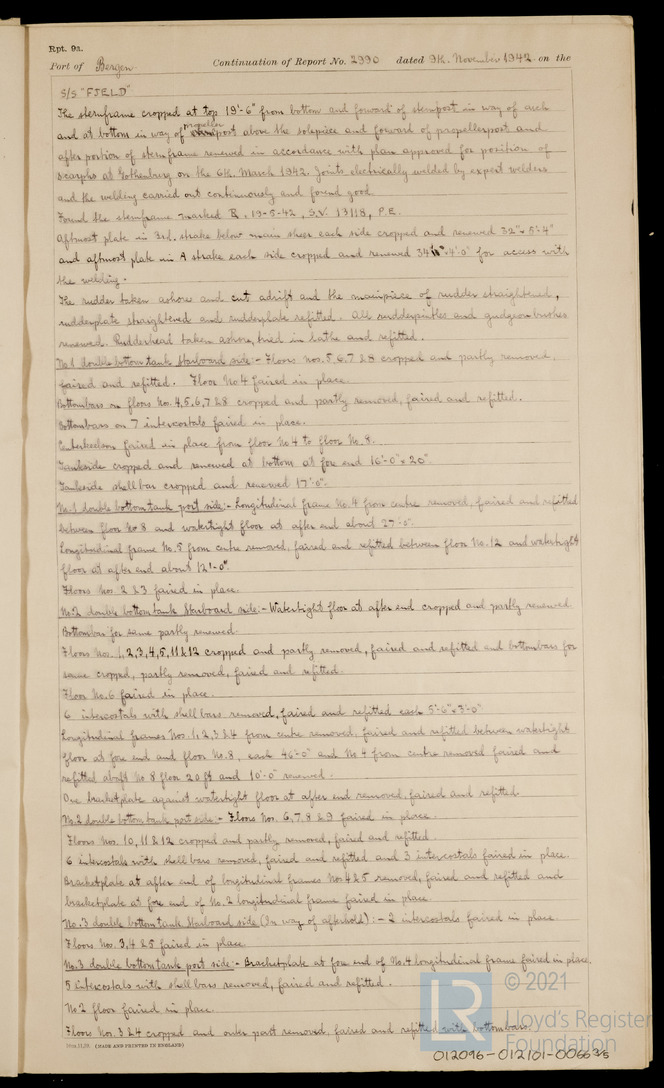 Rpt. 9a.
Port of Bergen Continuation of Report No. 2990 dated 9th. November 1942 on the
S/S "FJELD"
The sternframe cropped at top 19'-6" from bottom and forward of sternpost in way of arch
and at bottom in way of propeller post above the solepiece and forward of propellerpost and
after portion of sternframe renewed in accordance with plan approved for position of
scarphs at Gothenburg on the 6th. March 1942. Joints electrically welded by expert welders
and the welding carried out continuously and found good
Found the sternframe marked R. 19-5-42, S.V. 13118, P.E.
Aftmost plate in 3rd. strake below main sheer each side cropped and renewed 32" x 5'-4"
and aftmost plate in A strake each side cropped and renewed 34" x 4'-0" for access with
the welding.
The rudder taken ashore and cut adrift and the mainpiece of rudder straightened,
rudderplate straightened and rudderplate refitted. All rudderpintles and gudgeonbushes
renewed. Rudderhead taken ashore, tried in lathe and refitted.
No.1 double bottom tank Starboard side:- Floors nos. 5, 6, 7 & 8 cropped and partly removed,
faired and refitted. Floor No 4 faired in place.
Bottombars on floors No. 4, 5, 6, 7 & 8 cropped and partly removed, faired and refitted.
Bottombars on 7 intercostals faired in place.
Centerkeelson faired in place from floor No 4 to floor No. 8.
Tankside cropped and renewed at bottom at fore end 16'-0" x 20"
Tankside shellbar cropped and renewed 17'-0".
No.1 double bottom tank port side:- Longitudinal frame No. 4 from centre removed, faired and refitted
between floor No 8 and watertight floor at after end about 27'-0".
Longitudinal frame No. 5 from centre removed, faired and refitted between floor No. 12 and watertight
floor at after end about 12'-0".
Floors Nos 2 & 3 faired in place.
No.2 double bottom tank Starboard side:- Watertight floor at after end cropped and partly renewed
Bottombar for same partly renewed.
Floors Nos. 1, 2, 3, 4, 5, 11 & 12 cropped and partly removed, faired and refitted and bottombars for
same cropped, partly removed, faired and refitted.
Floor No. 6 faired in place.
6 intercostals with shell bars removed, faired and refitted each 5'-6" x 3'-0"
Longitudinal frames Nos. 1, 2, 3 & 4 from centre removed, faired and refitted between watertight
floor at fore end and floor No. 8, each 46'-0" and No 4 from centre removed faired and
refitted abaft No 8 floor 20 ft and 10'-0" renewed.
One bracketplate against watertight floor at after end removed, faired and refitted.
No.2 double bottom tank port side:- Floors Nos. 6, 7, 8 & 9 faired in place.
Floors Nos. 10, 11 & 12 cropped and partly removed, faired and refitted.
6 intercostals with shell bars removed, faired and refitted and 3 intercostals faired in place.
Bracketplate at after end of longitudinal frames No 4 & 5 removed, faired and refitted and
bracketplate at fore end of No. 2 longitudinal frame faired in place.
No. 3 double bottom tank Starboard side (In way of afterhold):- 2 intercostals faired in place
Floors Nos. 3, 4 & 5 faired in place.
No.3 double bottom tank port side:- Bracketplate at fore end of No. 4 longitudinal frame faired in place,
5 intercostals with shell bars removed, faired and refitted.
No 2 floor faired in place.
Floors Nos. 3 & 4 cropped and outer part removed, faired and refitted with bottombars.
(MADE AND PRINTED IN ENGLAND)
LR
© 2021
Lloyd's Register
Foundation
012096-012101-0066 3/5